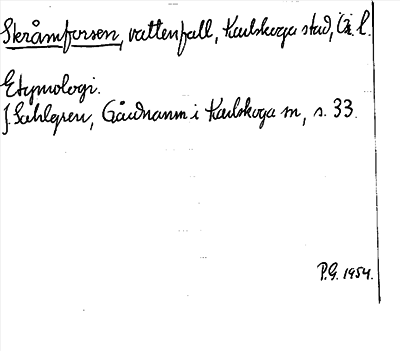 Skråmforsen, vattenfall, Karlskoga stad, Ö. l.
Etymologi.
J. Sahlgren, Gårdnamn i Karlskoga m, s. 33.
P.G. 1954.